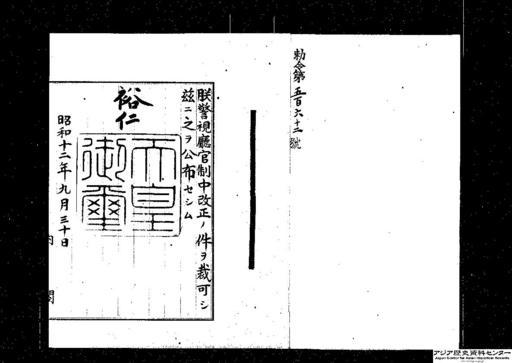 勅令第五百六十二號
朕警視廳官制中改正ノ件ヲ裁可シ
茲ニ之ヲ公布セシム
裕仁
天皇
御璽
昭和十二年九月三十日
内閣
アジア歴史資料センター
Japan Center for Asian Historical Records